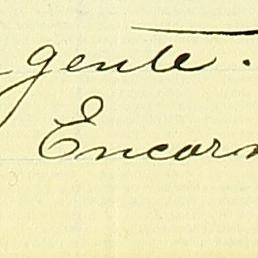 gente.
Encarn